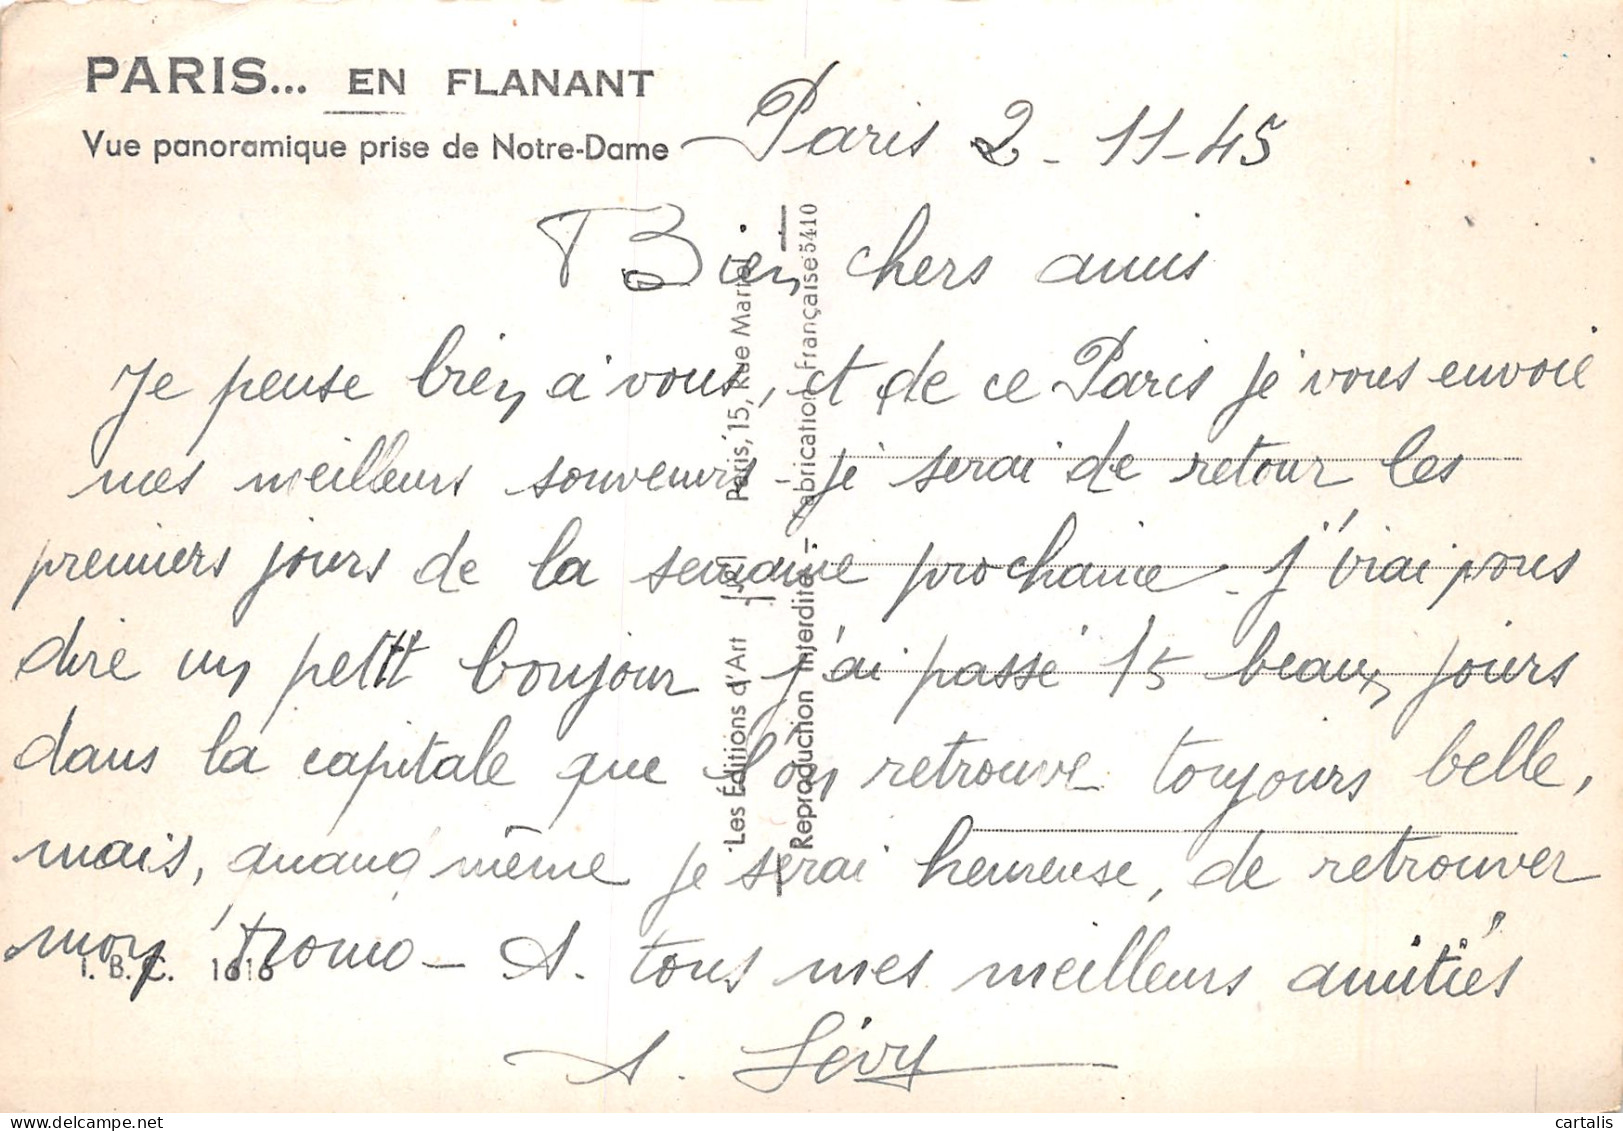 PARIS... EN FLANANT
Vue panoramique prise de Notre-Dame
Paris 2-11-45
Bien chers amis
Je pense bien à vous, et de ce Paris je vous envoie
mes meilleurs souvenirs - je serai de retour les
premiers jours de la semaine prochaine - j'irai vous
dire un petit bonjour j'ai passé 15 beaux jours
dans la capitale que l'on retrouve toujours belle,
mais, quand même je serai heureuse, de retrouver
mon - A tous mes meilleurs amitiés
A. Lévy
I. B. C. 1616
Les Éditions d'Art Paris, 15, Rue Martel
Reproduction Interdite - Fabrication Française 5410
cartalis